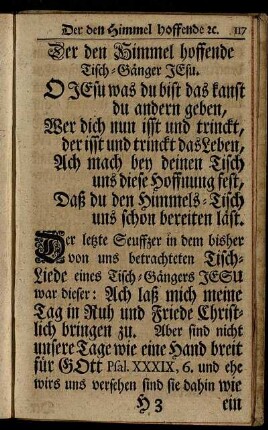 Der den Himmel hoffende ꝛc. 117
Der den Himmel hoffende
Tisch-Gänger JEsu.
O JEsu was du bist das kanst
du andern geben,
Wer dich nun isst und trinckt,
der isst und trinckt das Leben,
Ach mach bey deinen Tisch
uns diese Hoffnung fest,
Daß du den Himmels-Tisch
uns schön bereiten läst.
Der letzte Seuffzer in dem bisher
von uns betrachteten Tisch-
Liede eines Tisch-Gängers JESU
war dieser: Ach laß mich meine
Tag in Ruh und Friede Christ-
lich bringen zu. Aber sind nicht
unsere Tage wie eine Hand breit
für GOtt Psal. XXXIX, 6. und ehe
wirs uns versehen sind sie dahin wie
H 3 ein